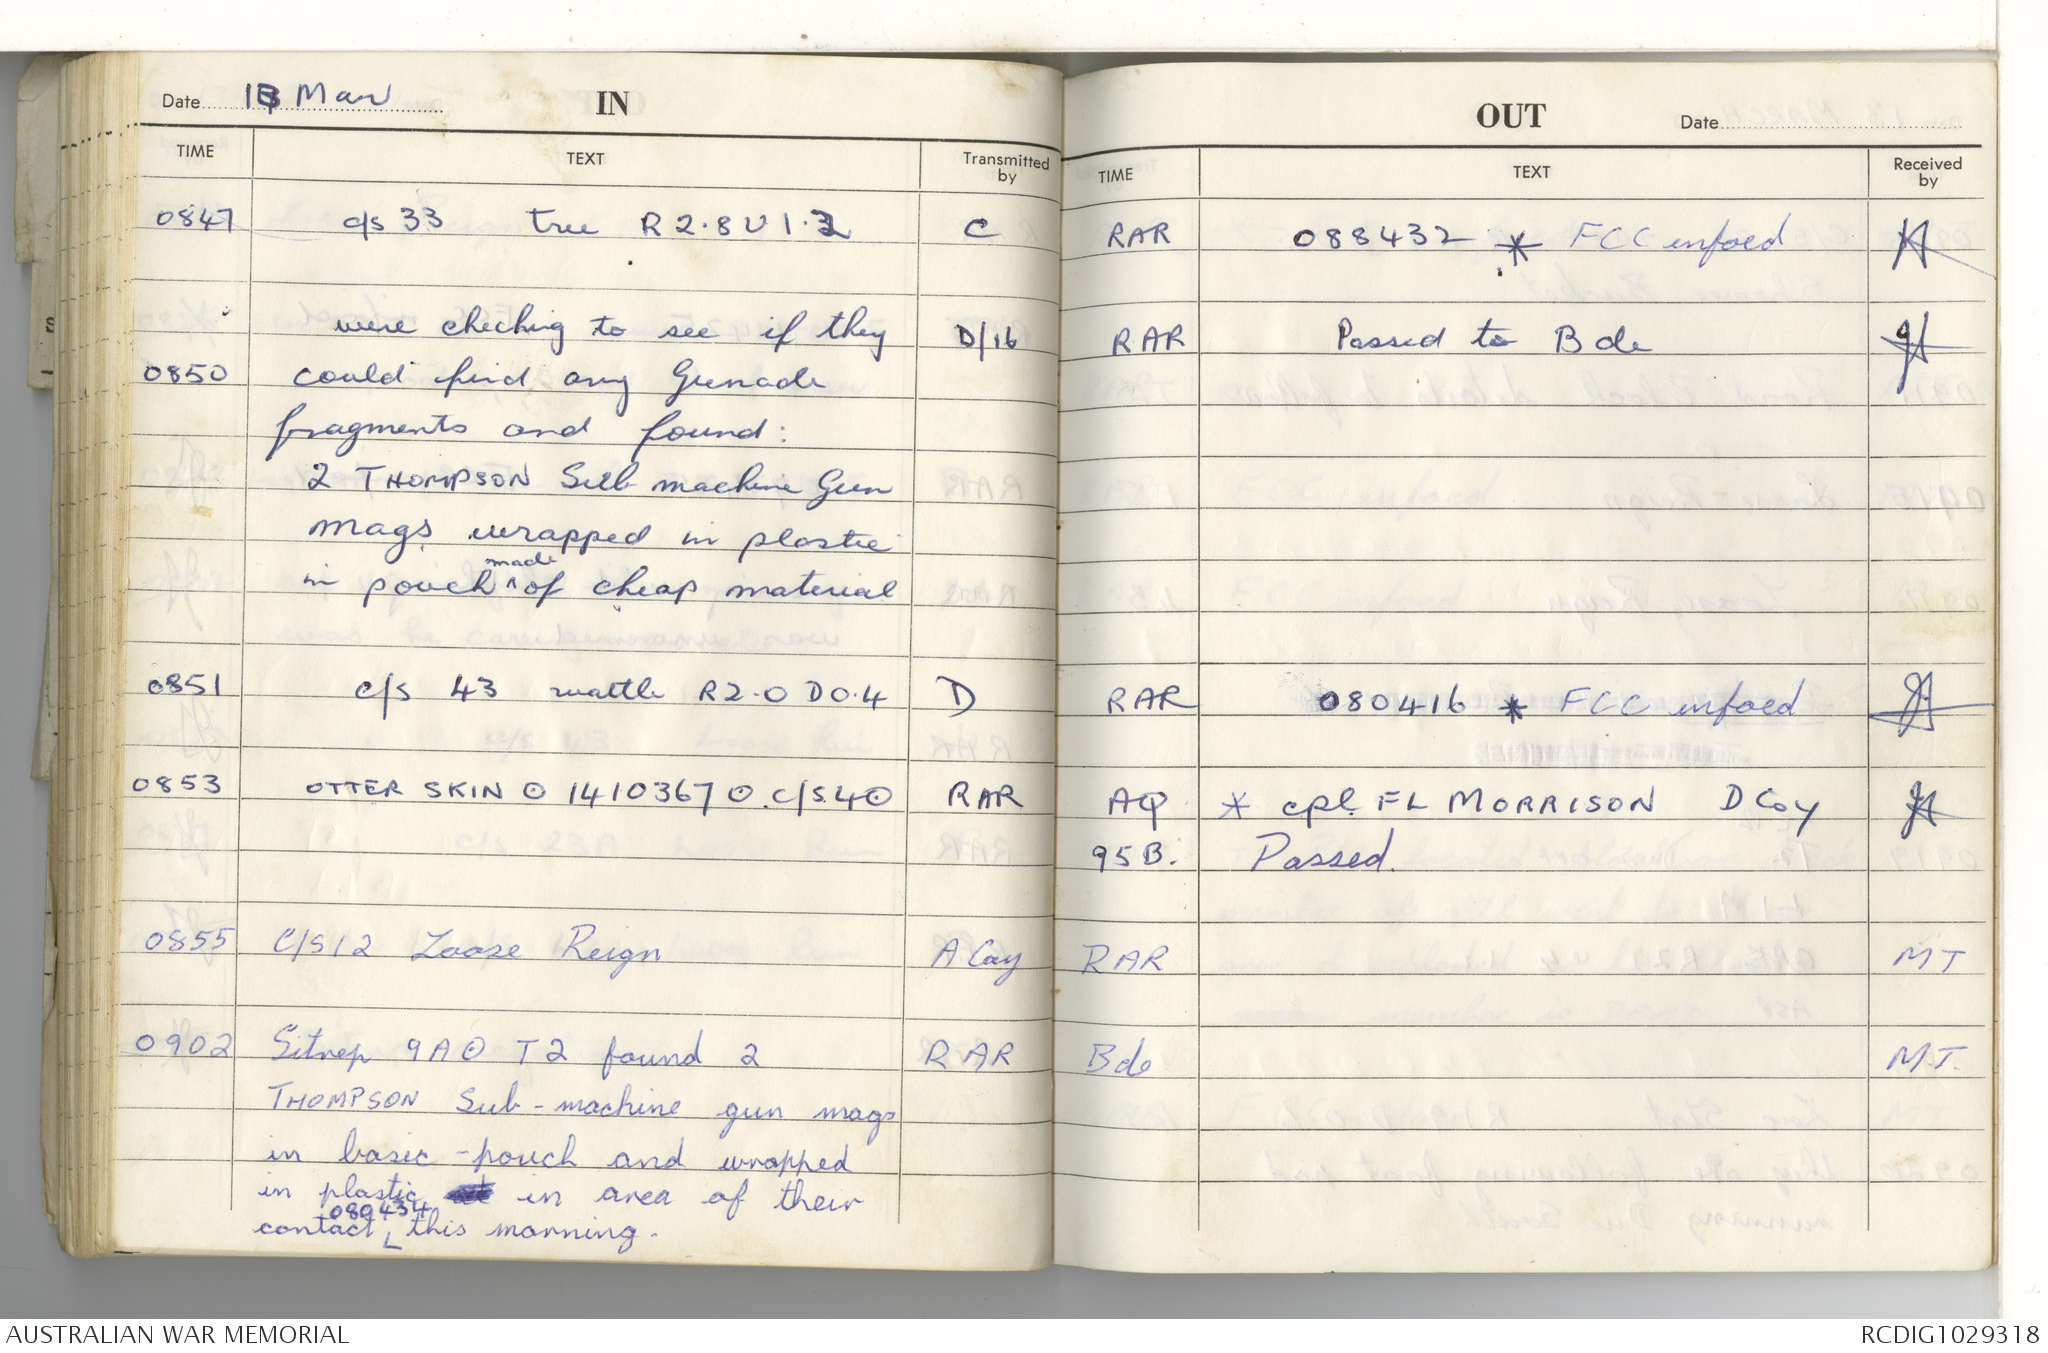 Date 18 Mar IN
TIME TEXT Transmitted by
0847 c/s 33 tree R2.8 U1.2 C
were checking to see if they D/16
0850 could find any Grenade
fragments and found:
2 THOMPSON Sub machine Gun
mags wrapped in plastic
in pouch made of cheap material
0851 c/s 43 wattle R2.0 D0.4 D
0853 OTTER SKIN O 1410367 O. C/S 40 RAR
0855 C/S 12 Loose Reign A Coy
0902 Sitrep 9A0 T2 found 2 RAR
THOMPSON Sub-machine gun mags
in basic-pouch and wrapped
in plastic in area of their
080434
contact this morning.
OUT Date
TIME TEXT Received by
RAR 088432 * FCC infoed
RAR Passed to Bde
RAR 080416 * FCC infoed
AQ * cpl FL MORRISON D Coy
95B. Passed.
RAR MT
Bde M.T.
AUSTRALIAN WAR MEMORIAL RCDIG1029318